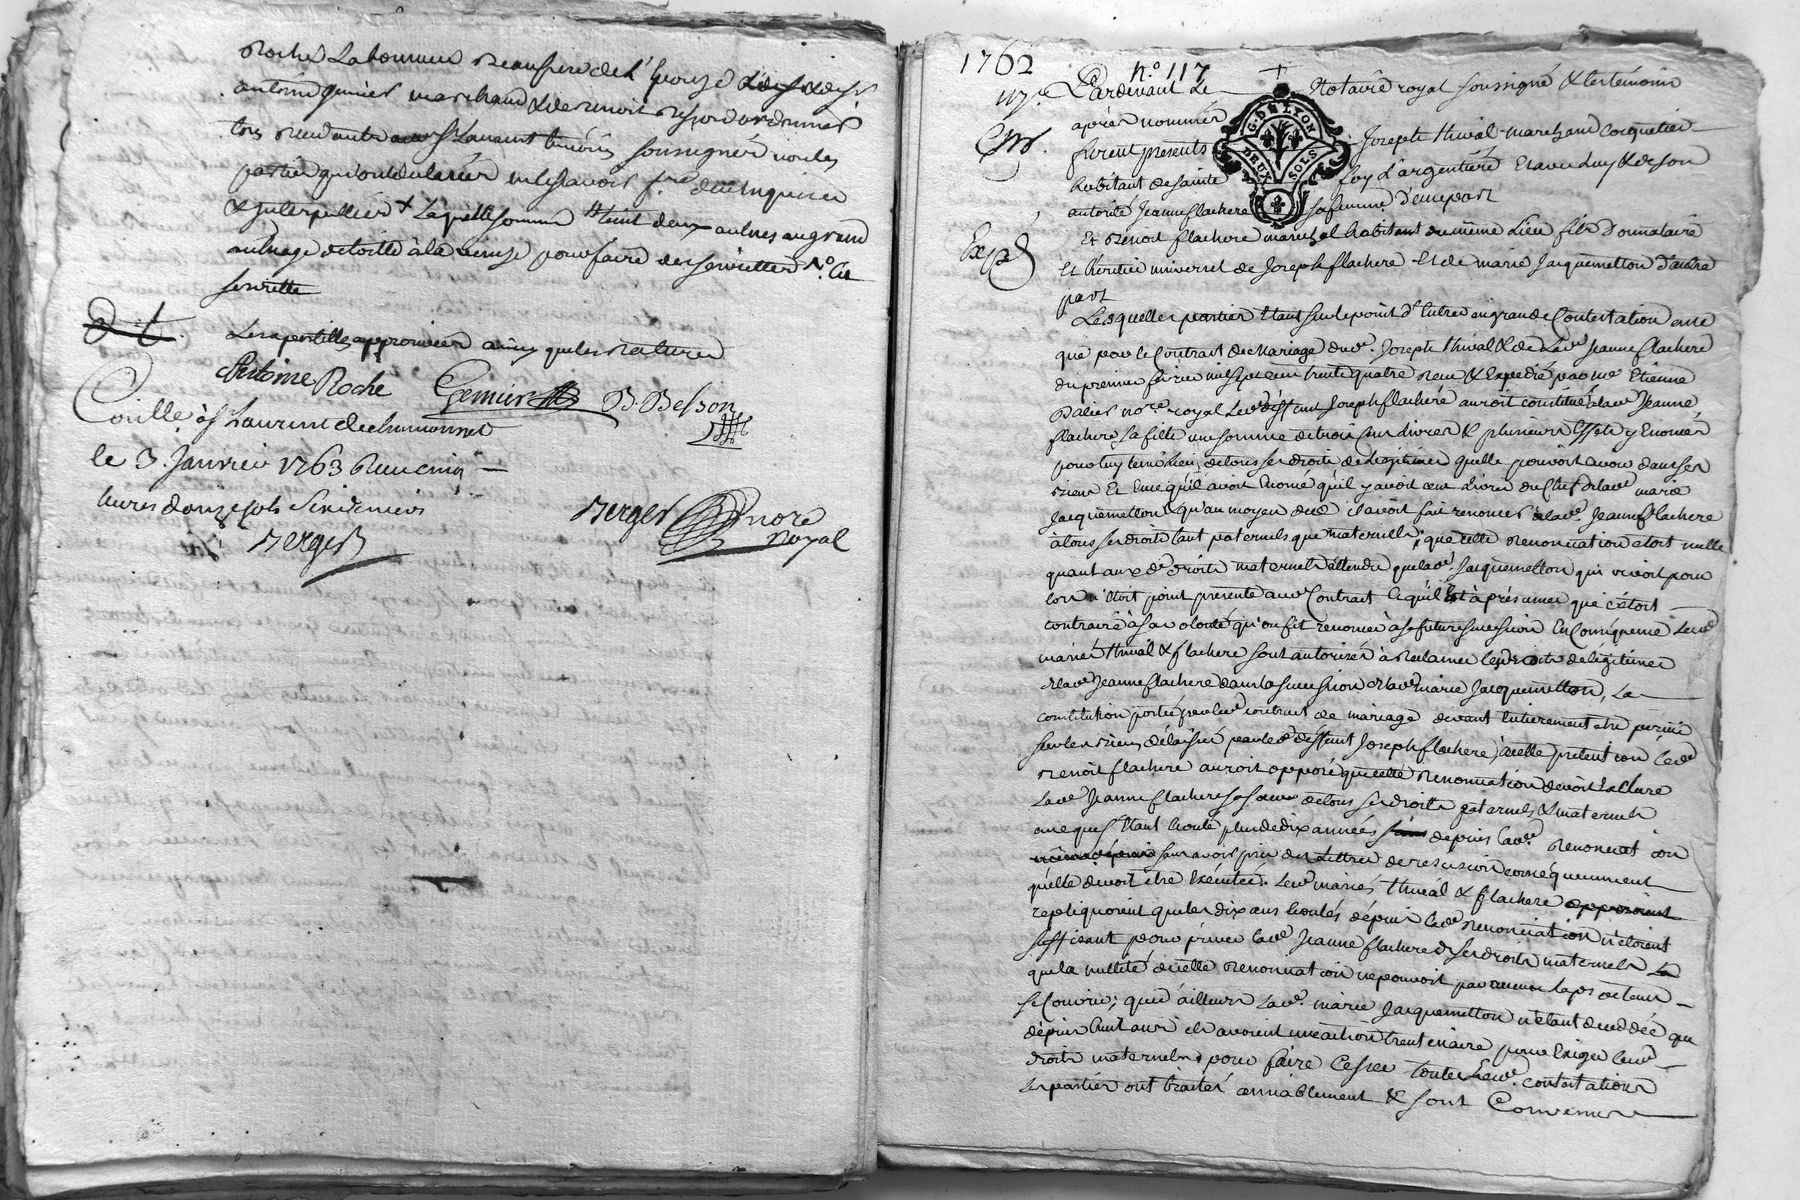 Roche Laboureur Beaupere de l'Epouze
antoine marchand & de Benoit
St Laurant temoins soussignés
partie qui ont déclarés ne le scavoir f.re de ce enquises
& interpellées + laquelle somme trent deux aulnes au grand
aulnage de toille à la pour faire des serviettes
serviette
Les apostilles approuvées ainsy que les ratures
Antoine Roche Gemier B. Besson
Conllé à St Laurent de chamousset
le 3. Janvier 1763 Reçu cinq
livres donze sols Six deniers
Berger
Berger nore Royal
1762
N.o 117
Pardevant Le Notaire royal soussigné & les temoins
après nommés
furent presents Joseph thival marchand coquetier
habitant de sainte foy L'argentiere et avec luy & de son
autorité Jeanne flachere sa femme d'une part
G. D. LYON
DEUX SOLS
Exped
Et Benoit flachere marechal habitant du même Lieu fils Donnataire
et héritier universel de Joseph flachere et de marie Jacquemetton d'autre
part
Lesquelles parties etant sur le point d'entrer en grande Contestation en ce
que par le Contrait de Mariage dud. Joseph thival & de Lad. Jeanne flachere
du premier fevrier mil sept cent trente quatre Recu & Expedié par me Etienne
Dalier nore royal Led. deffunt Joseph flachere auroit constitué a lad. Jeanne
flachere sa fille une somme de trois cens livres & plusieurs Effets y Enoncés
pour luy tenir Lieu de tous ses droits de Legitimes quelle pouvoit avoir dans ses
biens Et en ce qu'il avoit Enoncé qu'il y avoit cent Livres du Chef de lad. marie
Jacquemetton qu'au moyen de ce il avoit fait renoncer a lad. Jeanne flachere
à tous ses droits tant paternels que maternels; que cette Renonciation étoit nulle
quant aux d. droits maternels attendu que lad. Jacquemetton qui vivoit pour
lors n'étoit point presente aud. Contract Et qu'il est à présumer que c'etoit
contraire à sa volonté qu'on fit renoncer à sa future succession En Consequence Lesd.
mariés thival & flachere sont autorisés à Réclamer les droits de légitimes
de lad. Jeanne flachere dans la succession de lad. marie Jacquemetton, La
constitution portée par led. contrait de mariage devant entierement etre perçue
sur les biens délaissés par led. deffunt Joseph flachere, à cette pretention led.
Benoit flachere auroit opposé que cette Renonciation devoit Exclure
Lad. Jeanne flachere sa soeur de tous ses droits paternels & maternels
en ce que s'etant écoulé plus de dix années depuis lad. Renonciation
sans avoir pris des Lettres de rescision consequemment
qu'elle devoit etre Exécutée. Lesd. mariés thival & flachere opposoient
repliquoient que les dix ans écoulés depuis lad. Renonciation n'etoient
suffisant pour priver lad. Jeanne flachere de ses droits maternels
que la nullité de cette Renonciation ne pouvoit par aucun laps de tems
se Couvrir; que d'ailleurs Lad. marie Jacquemetton n'étant decedée que
depuis huit ans ils avoient une action trentenaire pour Exiger leurs
droits maternels, pour faire Cesser toutes Lesd. contestations
Les parties ont traités amiablement & sont Convenues